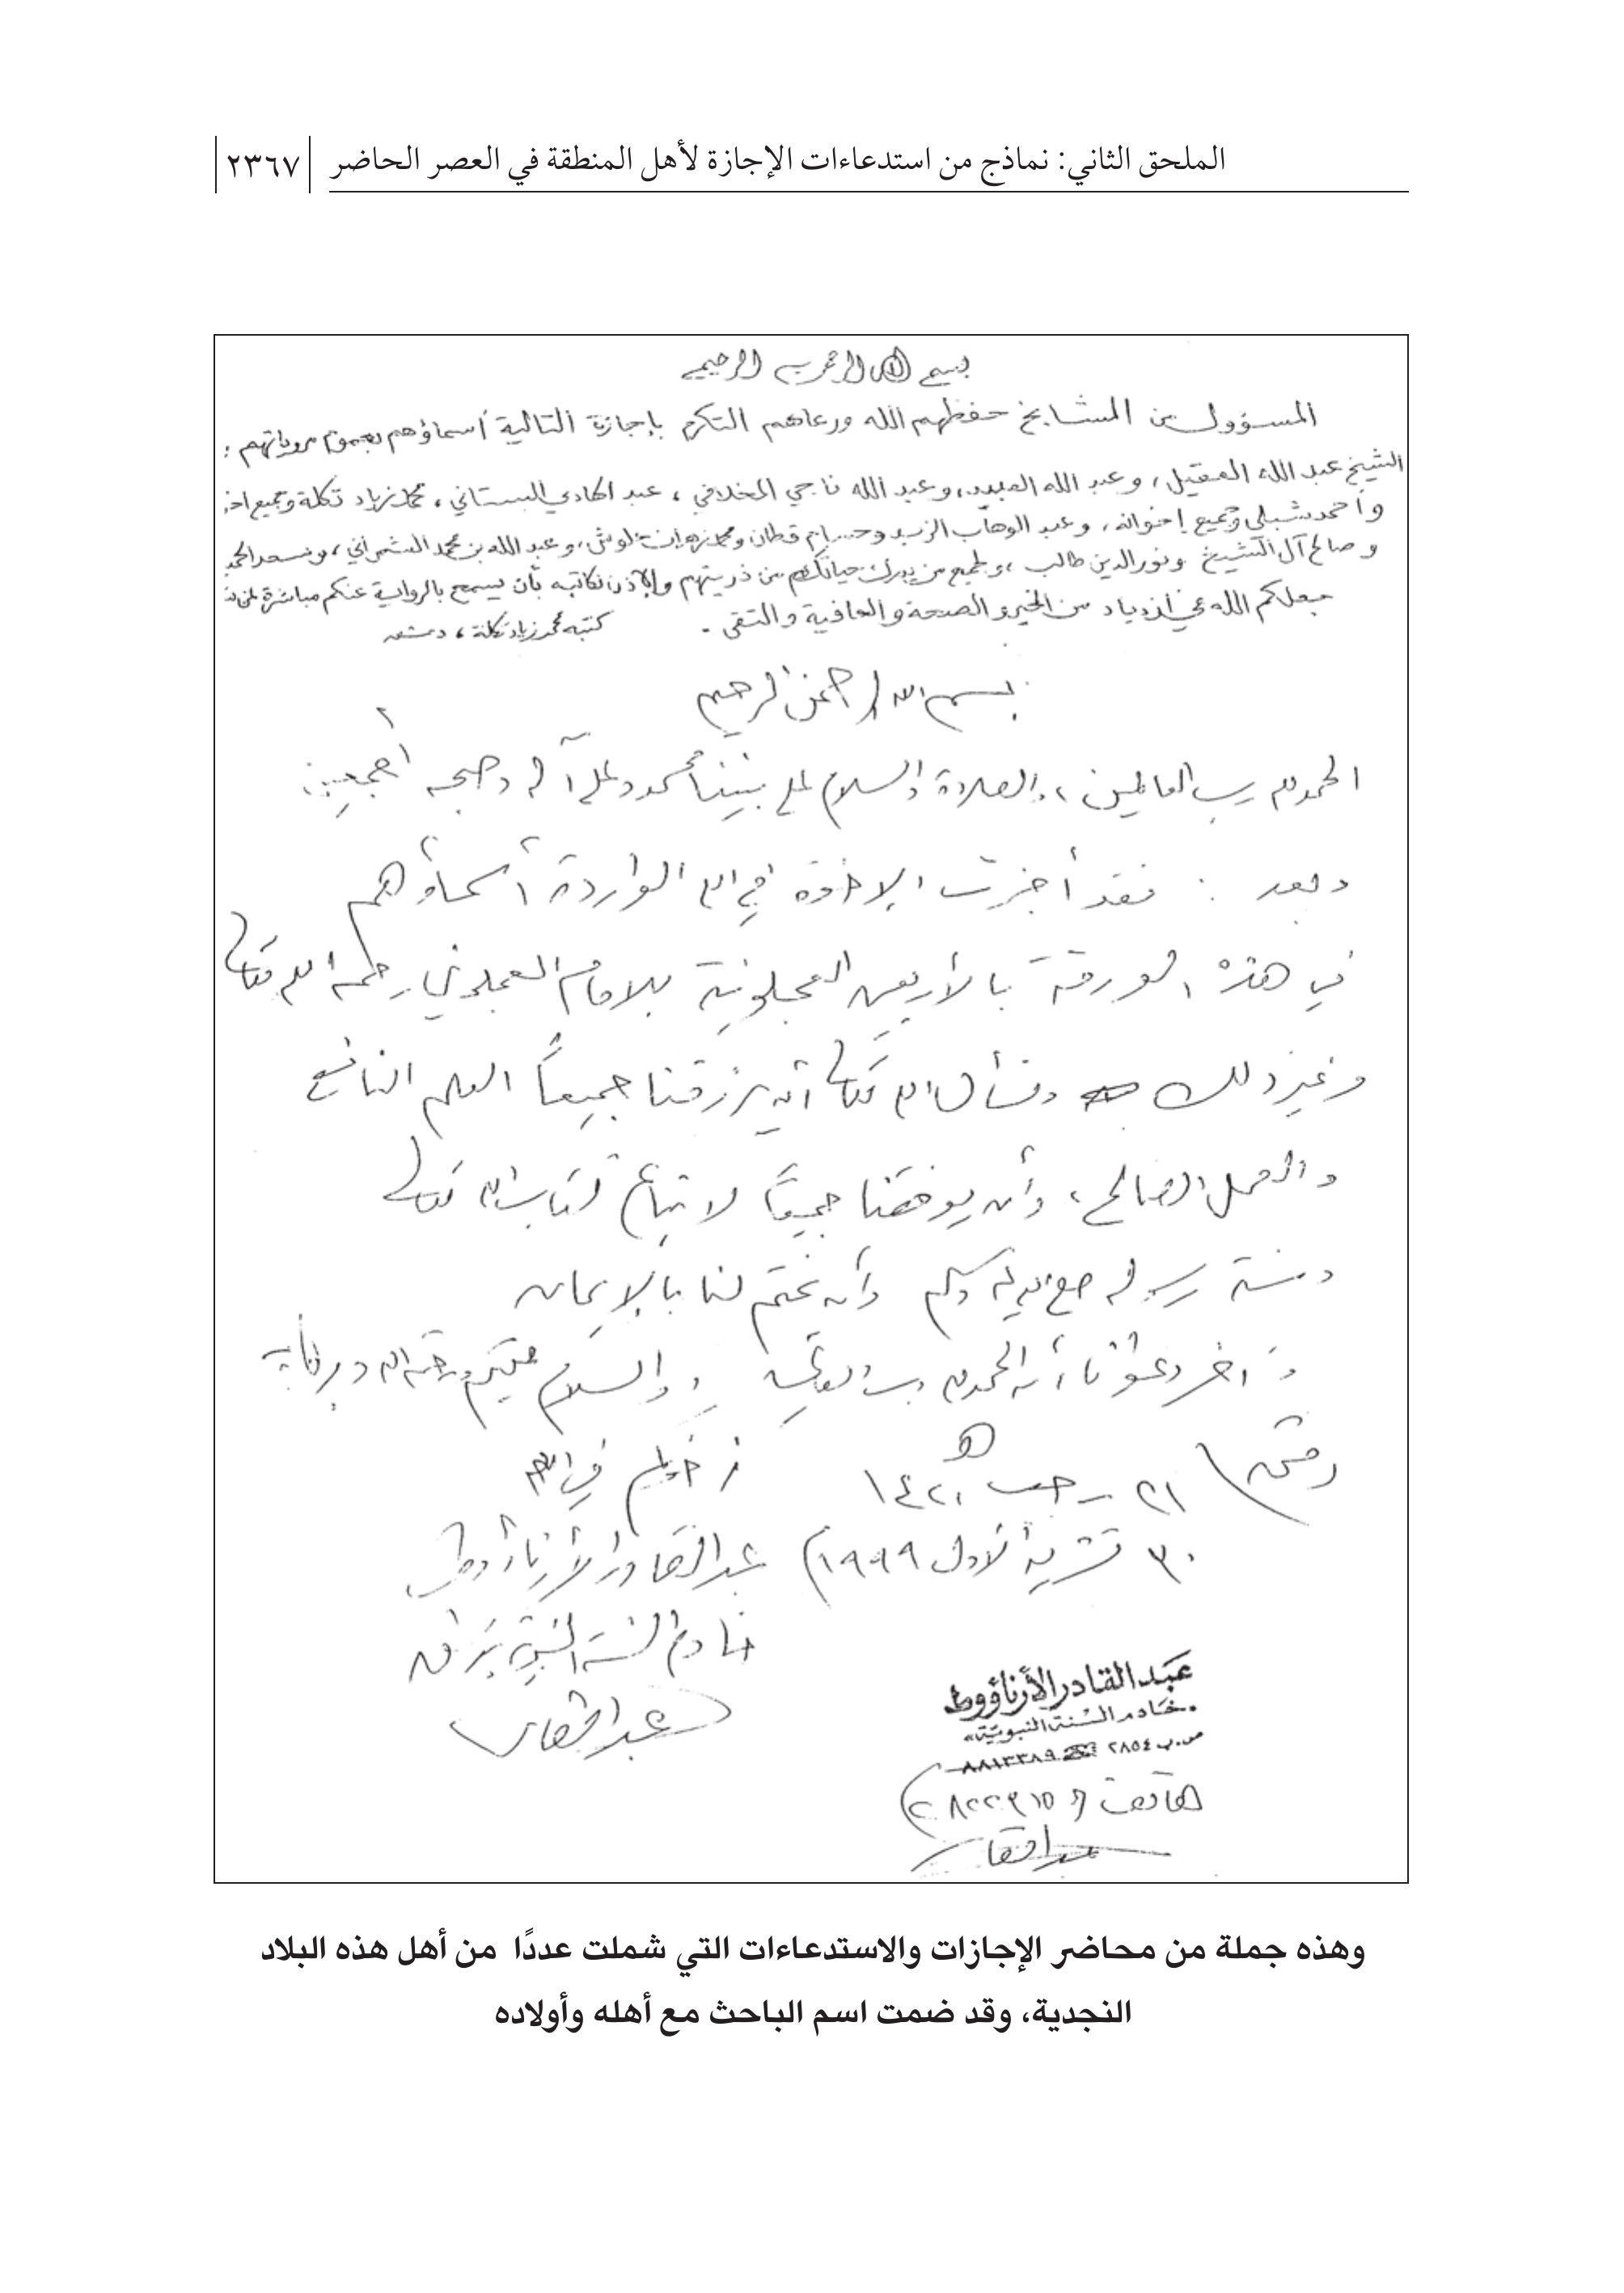 الملحق الثاني: نماذج من استدعاءات الإجازة لأهل المنطقة في العصر الحاضر ٢٣٦٧
بسم الله الرحمن الرحيم
المسؤول من المشايخ حفظهم الله ورعاهم التكرم بإجازة التالية أسماؤهم بعموم مروياتهم:
الشيخ عبد الله العقيل، وعبد الله العبيد، وعبد الله ناجي المخلافي، عبد الهادي البستاني، محمد زياد تكلة وجميع
وأحمد شبلي وجميع إخوانه، وعبد الوهاب الزيد وحسام قطان ومحمد زهران، وعبد الله بن محمد الشمراني،
وصالح آل الشيخ ونور الدين طالب، ولجميع من يدرك حياتكم من ذريتهم والإذن لكاتبه بأن يسمح بالرواية عنكم مباشرة
جعلكم الله في ازدياد من الخير والصحة والعافية والتقى.
كتبه محمد زياد تكلة، دمشق
بسم الله الرحمن الرحيم
الحمد لله رب العالمين، والصلاة والسلام على نبينا محمد وعلى آله وصحبه أجمعين:
وبعد: فقد أجزت الإخوة في الله الواردة أسماؤهم
في هذه الورقة بالأربعين العجلونية للإمام العجلوني رحمه الله تعالى
وغير ذلك ونسأل الله تعالى أن يرزقنا جميعاً العلم النافع
والعمل الصالح، وأن يوفقنا جميعاً لاتباع كتاب الله تعالى
وسنة رسوله صلى الله عليه وسلم وأن يختم لنا بالإيمان
وآخر دعوانا أن الحمد لله رب العالمين، والسلام عليكم ورحمة الله وبركاته
دمشق ٢١ رجب ١٤٢٠ هـ
أخوكم في الله
٣٠ تشرين الأول ١٩٩٩م
عبد القادر الأرناؤوط
خادم السنة النبوية بدمشق
عبد القادر
عبد القادر الأرناؤوط
«خادم السنة النبوية»
ص.ب ٢٨٥٤ ☎ ٨٨١٣٣٨٩
هاتف
عبد القادر
وهذه جملة من محاضر الإجازات والاستدعاءات التي شملت عددًا من أهل هذه البلاد
النجدية، وقد ضمت اسم الباحث مع أهله وأولاده